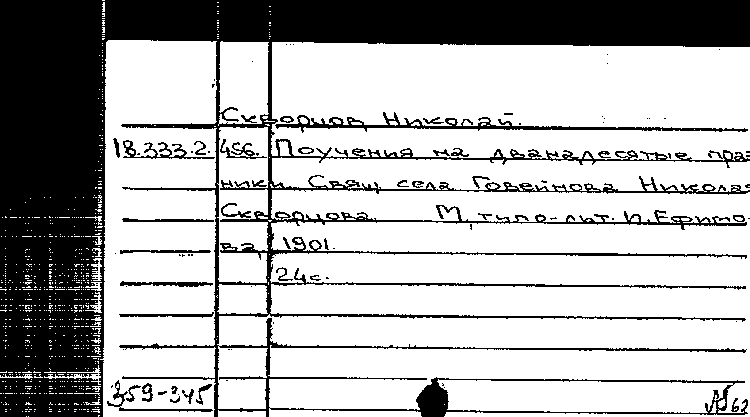 Скворцов, Николай.
18.333.2.456. Поучения на дванадесятые праз
ники. Свящ. села Говейнова Николая
Скворцова. М, типо-лит. И. Ефимо
ва, 1901.
24с.
359-345